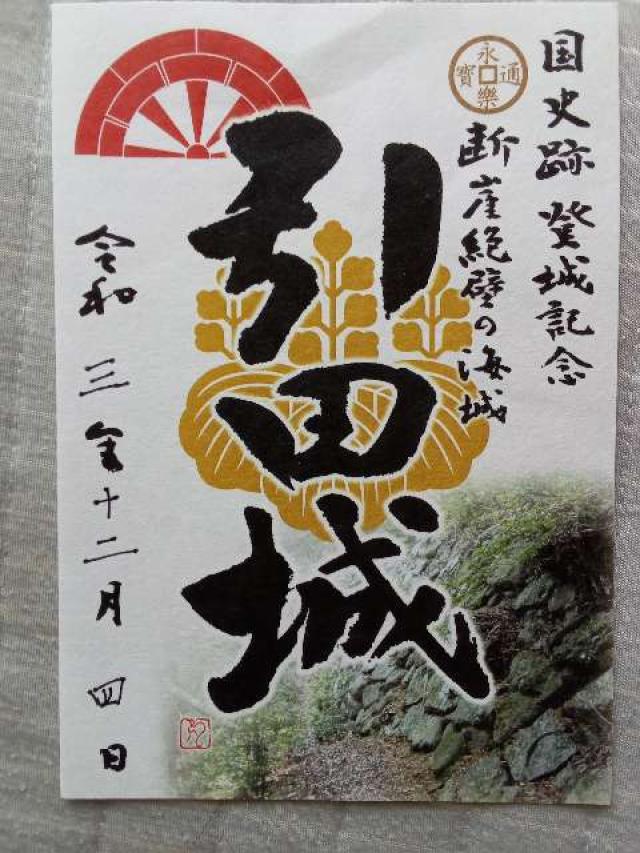 国史跡 登城記念
永樂通寶
断崖絶壁の海城
引田城
令和三年十二月四日